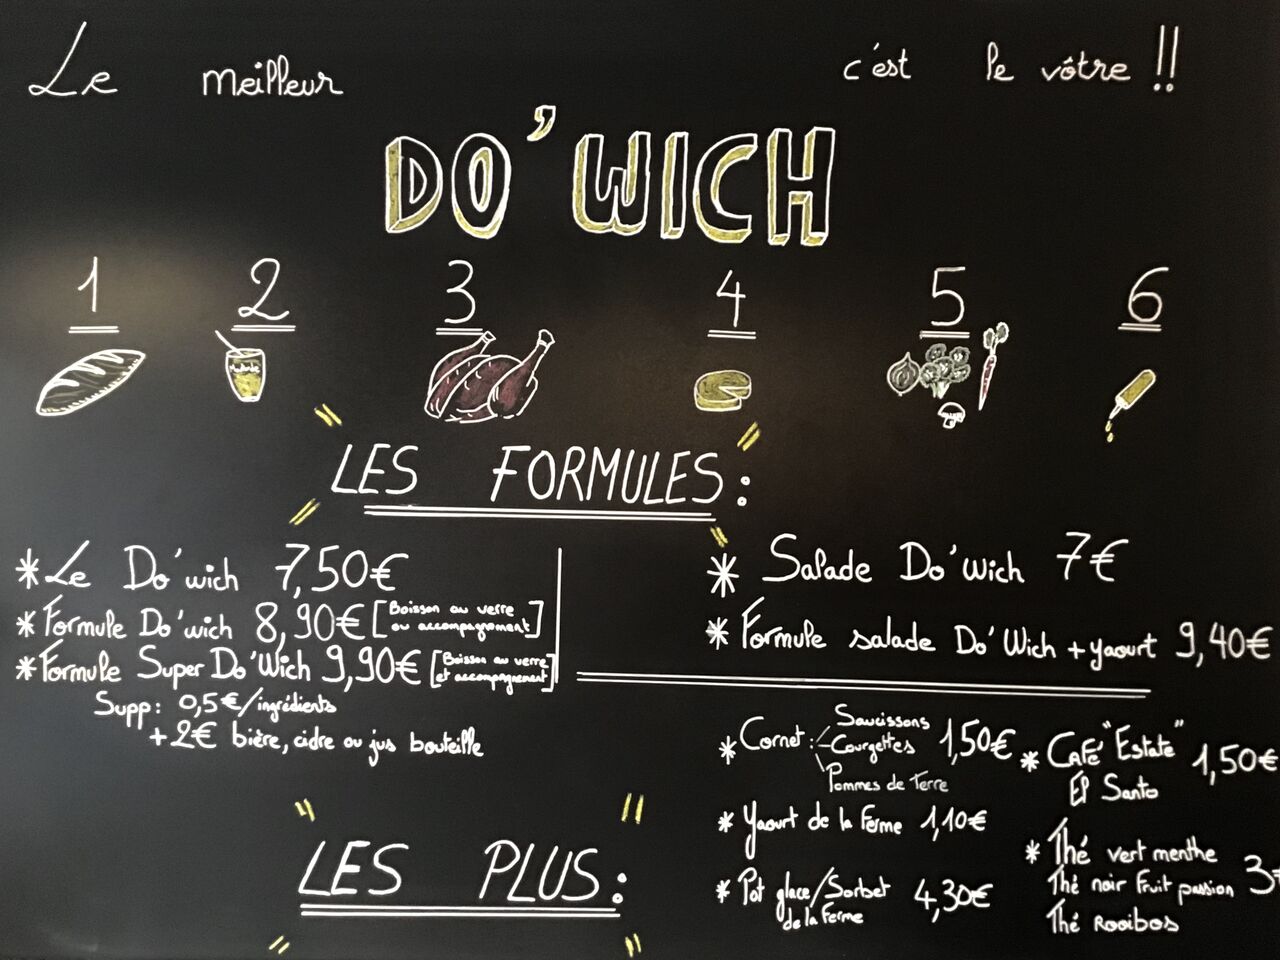 Le meilleur
DO'WICH
c'est le vôtre !!
1 2 3 4 5 6
LES FORMULES:
* Le Do'wich 7,50€
* Formule Do'wich 8,90€ [Boisson au verre
ou accompagnement]
* Formule Super Do'Wich 9,90€ [Boisson au verre
et accompagnement]
Supp: 0,5€/ingrédients
+2€ bière, cidre ou jus bouteille
* Salade Do'Wich 7€
* Formule salade Do'Wich + yaourt 9,40€
LES PLUS:
* Cornet: Saucissons
Courgettes 1,50€
Pommes de Terre
* Yaourt de la Ferme 1,10€
* Pot glace/Sorbet 4,30€
de la Ferme
* Café "Estate" 1,50€
El Santo
* Thé vert menthe
Thé noir Fruit passion 3
Thé Rooibos